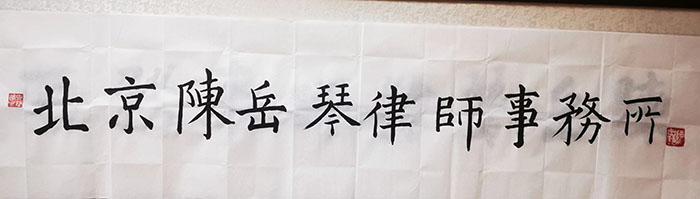 北京陳岳琴律師事務所